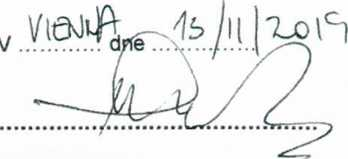 v VIENNA dne 13/11/2019